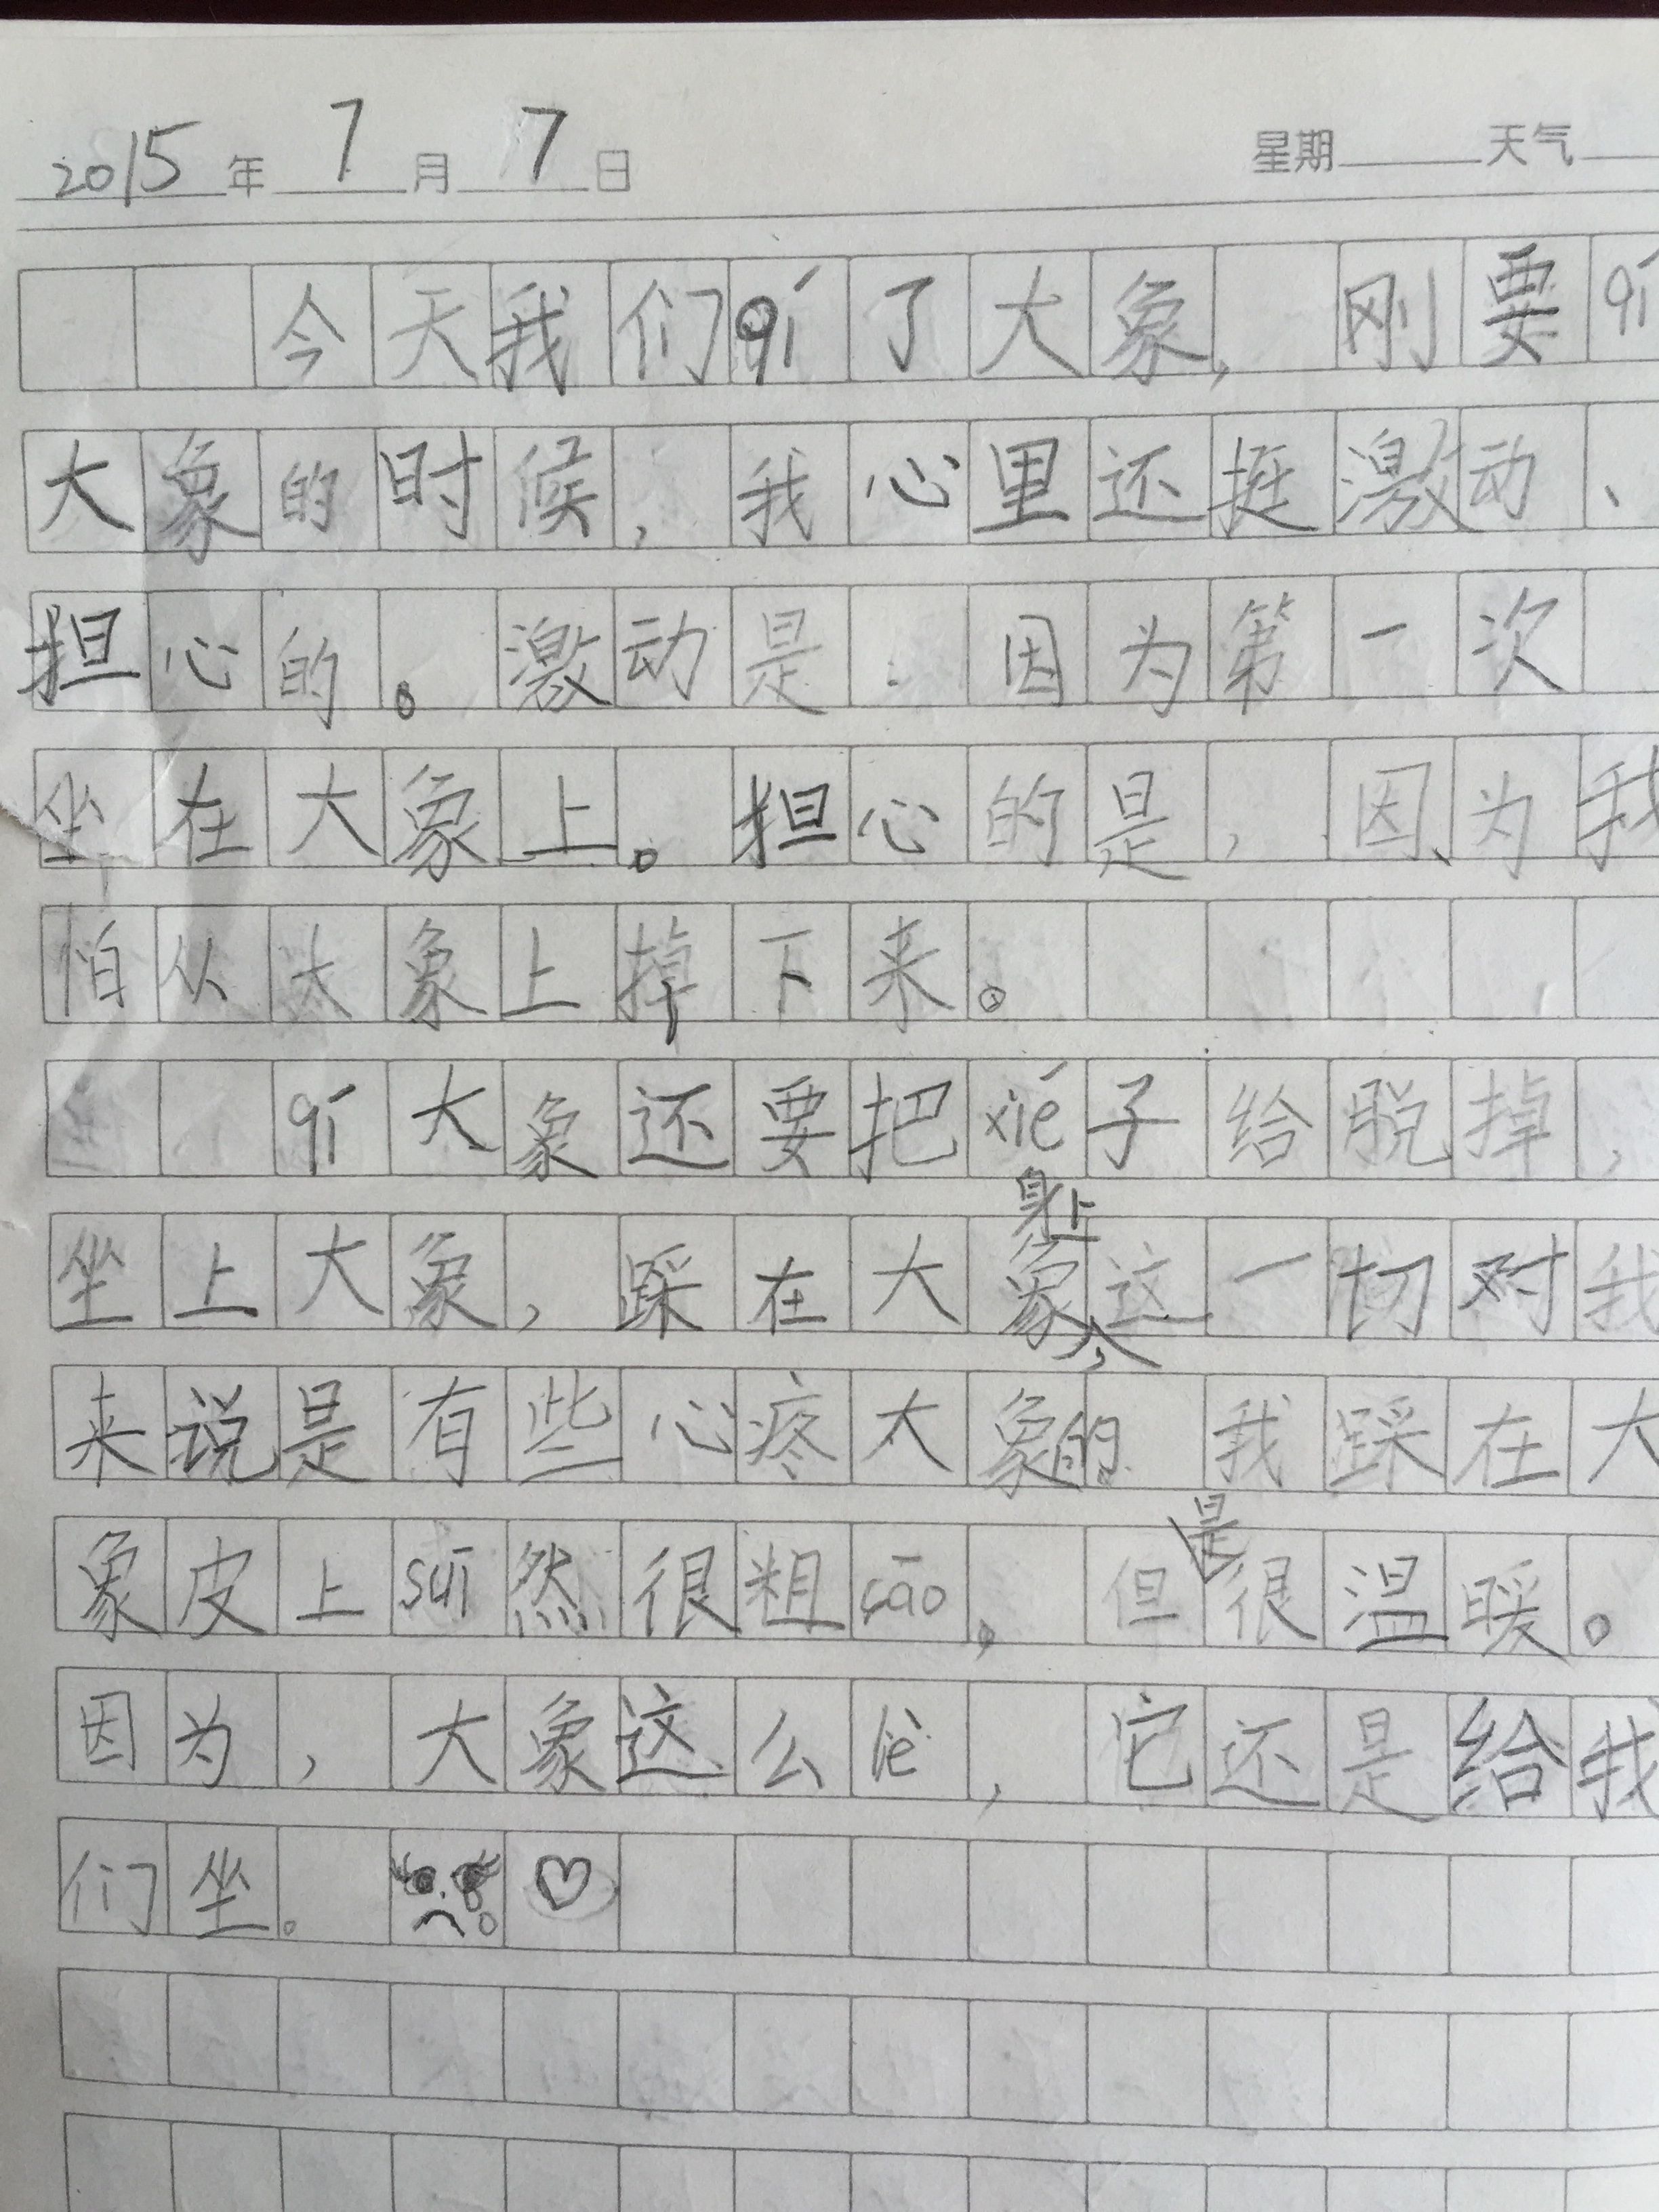 2015年7月7日 星期 天气
今天我们qí了大象，刚要qí
大象的时候，我心里还挺激动、
担心的。激动是：因为第一次
坐在大象上。担心的是，因为我
怕从大象上掉下来。
qí大象还要把xié子给脱掉，
坐上大象，踩在大象身上，这一切对我
来说是有些心疼大象的。我踩在大
象皮上suī然很粗cāo，但是很温暖。
因为，大象这么lèi，它还是给我
们坐。